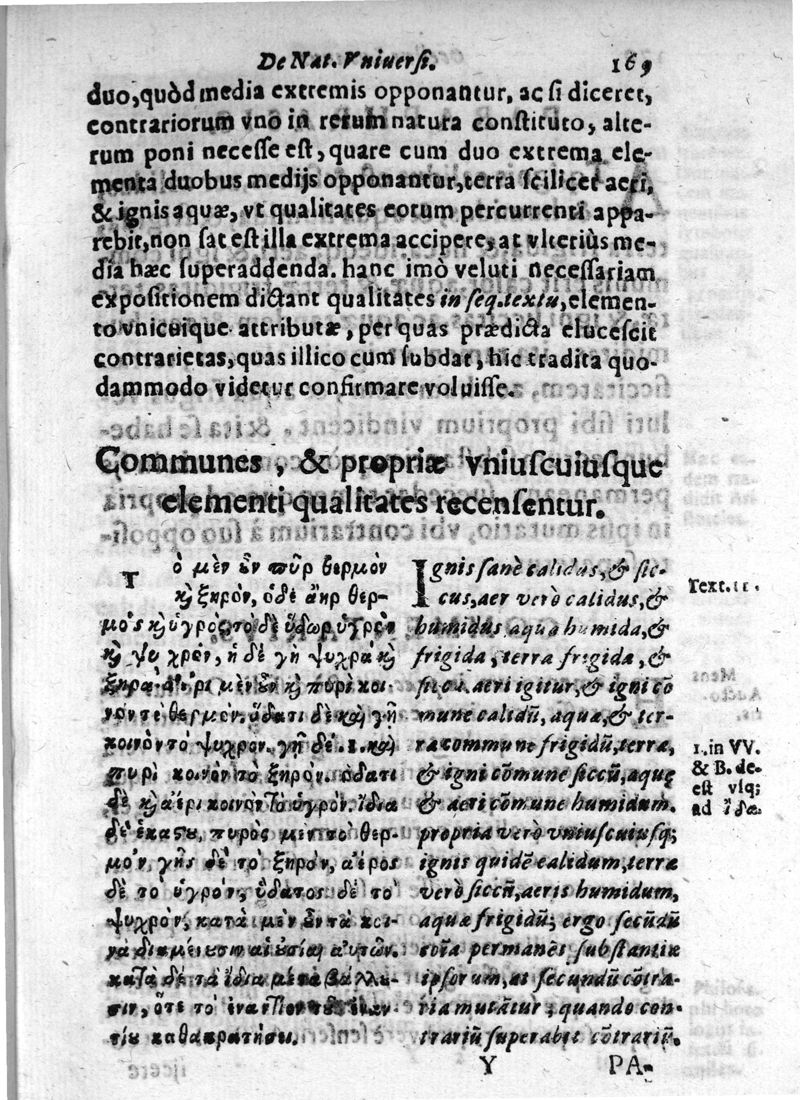 De Nat. Vniuersi. 169
duo, quòd media extremis opponantur, ac si diceret,
contrariorum vno in rerum natura constituto, alte-
rum poni necesse est, quare cum duo extrema ele-
menta duobus medijs opponantur, terra scilicet aeri,
& ignis aquæ, vt qualitates eorum percurrenti appa-
rebit, non sat est illa extrema accipere, at vlteriùs me-
dia hæc superaddenda. hanc imò veluti necessariam
expositionem dictant qualitates in seq. textu, elemen-
to vnicuique attributæ, per quas prædicta elucescit
contrarietas, quas illico cum subdat, hic tradita quo-
dammodo videtur confirmare voluisse.
Communes, & propriæ vniuscuiusque
elementi qualitates recensentur.
Τὸ μὲν ȣ̓ν πῦρ θερμὸν
κὶ ξηρὸν, ὁ δὲ ἀὴρ θερ-
μὸς κὶ ὑγρὸς, τὸ δὲ ὕδωρ ὑγρὸν
κὶ ψυχρὸν, ἡ δὲ γῆ ψυχρὰ κὶ
ξηρὰ. ἀέρι μὲν ȣ̓ν κὶ πυρὶ κοι-
νον τὸ θερμὸν. ὕδατι δὲ καὶ γῆ
κοινὸν τὸ ψυχρον. γῆ δὲ .1. καὶ
πυρὶ κοινὸν τὸ ξηρὸν. ὕδατι
δὲ κὶ ἀέρι κοινὸν τὸ ὑγρὸν. ἴδια
δὲ ἑκάςȣ, πυρὸς μὲν τὸ θερ-
μὸν, γῆς δὲ τὸ ξηρὸν, ἀέρος
δὲ τὸ ὑγρὸν, ὕδατος δὲ τὸ
ψυχρὸν, κατὰ μὲν ȣ̓ν τὰ κοι-
νὰ διαμένȣσιν αἱ ȣ̓σίαι αὐτῶν.
κατὰ δὲ τὰ ἴδια μεταβάλλȣ-
σιν, ὅτε τὸ ἐναντίον τȣ͂ ἐναν-
τίȣ καθακρατήσει.
Ignis sanè calidus, & sic-
cus, aer verò calidus, &
humidus, aqua humida, &
frigida, terra frigida, &
sicca. aeri igitur, & igni cō
mune calidū, aquæ, & ter-
ræ commune frigidū, terræ,
& igni cōmune siccū, aquę
& aeri cōmune humidum.
propria verò vniuscuiusq;
ignis quidē calidum, terræ
verò siccū, aeris humidum,
aquæ frigidū; ergo secūdū
coīa permanēt substantiæ
ipsorum, at secundū cōtra-
ria mutātur; quando con-
trariū superabit cōtrariū.
Text. 11.
1. in VV.
& B. de-
est vsq;
ad ἴδια
Y PA-